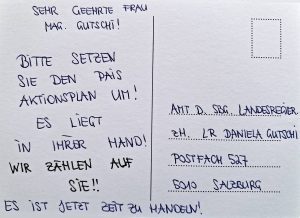 SEHR GEEHRTE FRAU
MAG. GUTSCHI!
BITTE SETZEN
SIE DEN PAIS
AKTIONSPLAN UM!
ES LIEGT
IN IHRER HAND!
WIR ZÄHLEN AUF
SIE!!
ES IST JETZT ZEIT ZU HANDELN!
AMT D. SBG. LANDESREGIER
ZH. LR DANIELA GUTSCHI
POSTFACH 527
5010 SALZBURG